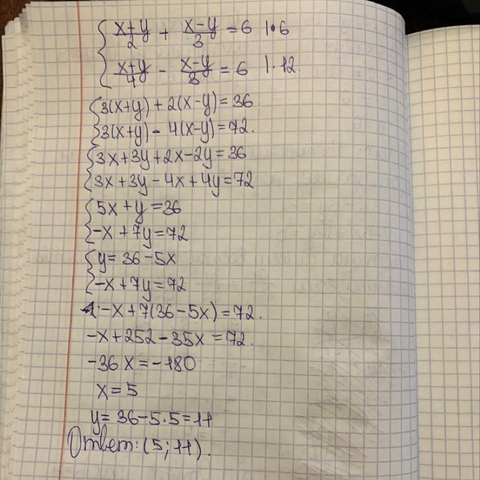 { (x+y)/2 + (x-y)/3 = 6 | · 6
{ (x+y)/4 - (x-y)/3 = 6 | · 12
{ 3(x+y) + 2(x-y) = 36
{ 3(x+y) - 4(x-y) = 72.
{ 3x+3y+2x-2y=36
{ 3x+3y-4x+4y=72
{ 5x+y=36
{ -x+7y=72
{ y=36-5x
{ -x+7y=72
-x+7(36-5x)=72.
-x+252-35x=72.
-36x=-180
x=5
y=36-5·5=11
Ответ: (5; 11).